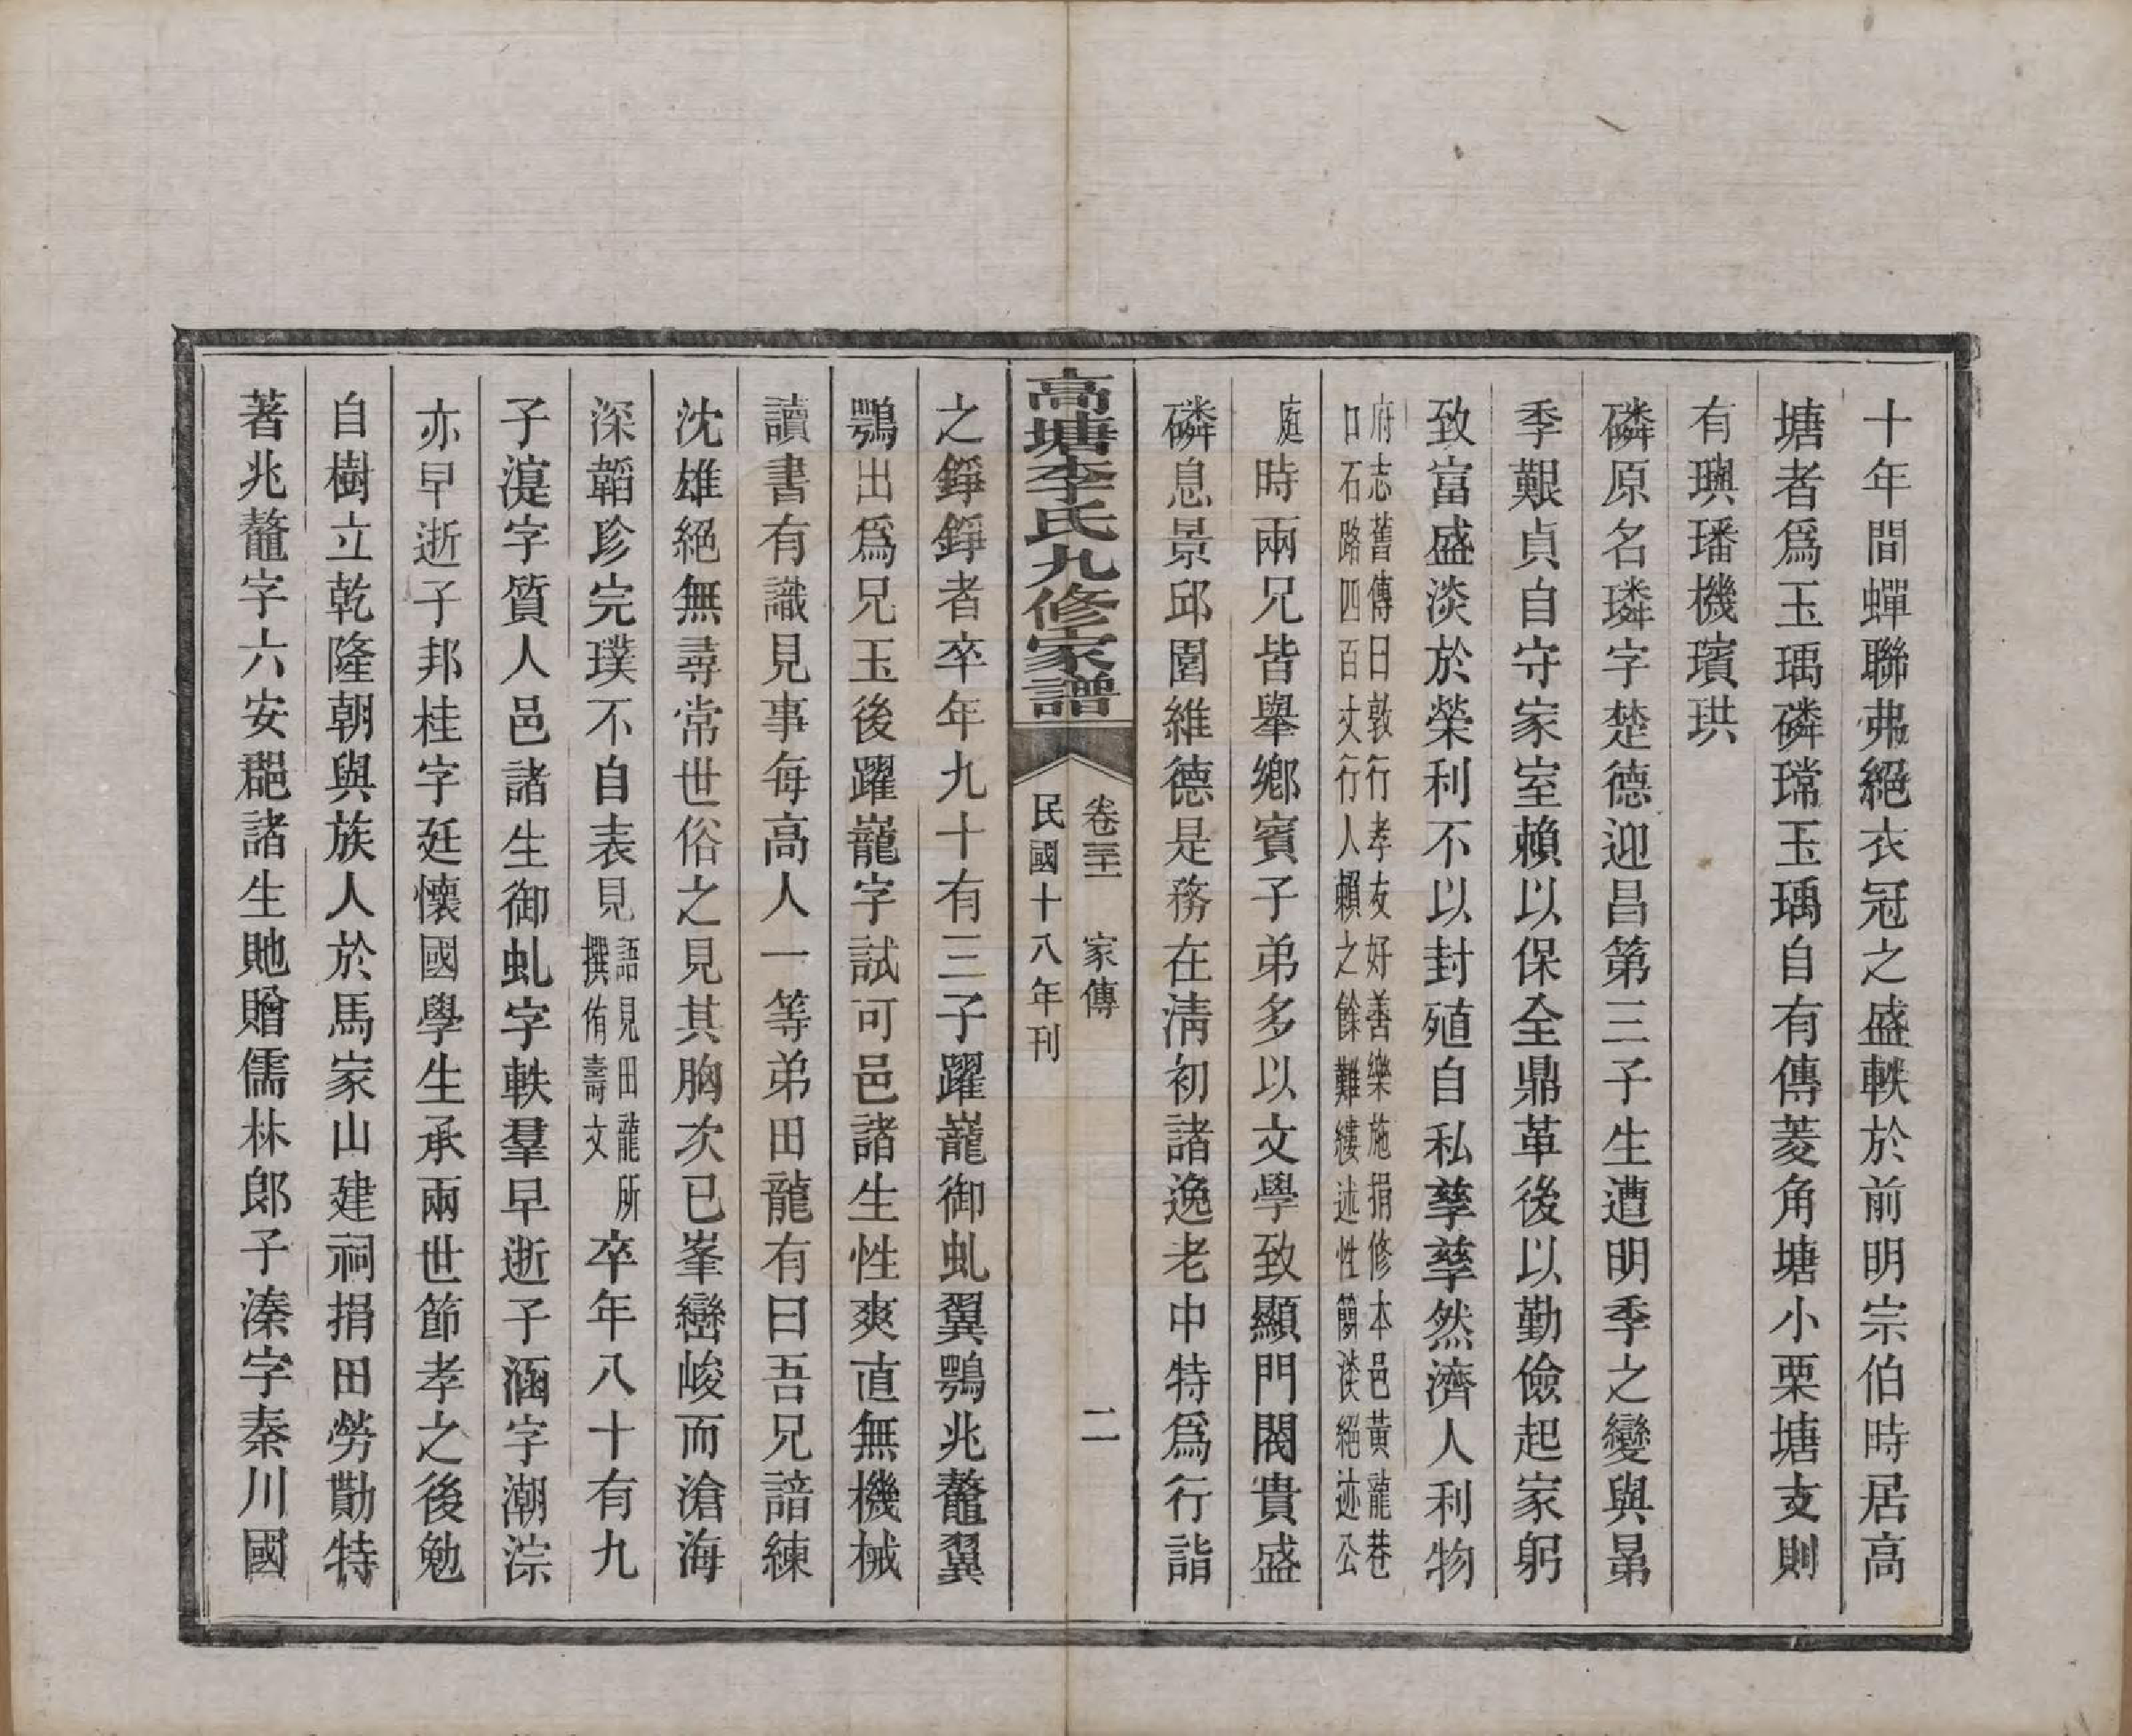 十年間蟬聯弗絕衣冠之盛軼於前明宗伯時居高
塘者爲玉瑀磷璫玉瑀自有傳菱角塘小栗塘支則
有璵璠機璸珙
磷原名璘字楚德迎昌第三子生遭明季之變與晜
季艱貞自守家室賴以保全鼎革後以勤儉起家躬
致富盛淡於榮利不以封殖自私孳孳然濟人利物
府志舊傳曰敦行孝友好善樂施捐修本邑黃龍巷
口石路四百丈行人賴之餘難縷述性簡淡絕迹公
庭
時兩兄皆舉鄉賓子弟多以文學致顯門閥貴盛
磷息景邱園維德是務在淸初諸逸老中特爲行詣
高塘李氏九修家譜
卷三十一 家傳 二
民國十八年刊
之錚錚者卒年九十有三子躍巃御虬翼鶚兆鼇翼
鶚出爲兄玉後躍巃字試可邑諸生性爽直無機械
讀書有識見事每高人一等弟田龍有曰吾兄諳練
沈雄絕無尋常世俗之見其胸次已峯巒峻而滄海
深韜珍完璞不自表見
語見田龍所
撰侑壽文
卒年八十有九
子湜字質人邑諸生御虬字軼羣早逝子涵字潮淙
亦早逝子邦桂字廷懷國學生承兩世節孝之後勉
自樹立乾隆朝與族人於馬家山建祠捐田勞勩特
著兆鼇字六安郡諸生貤贈儒林郎子溱字秦川國